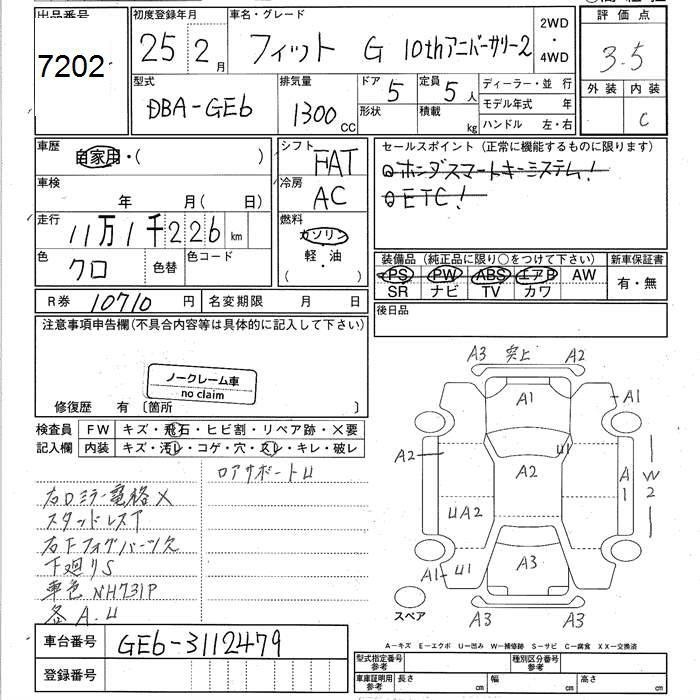 出品番号
7202
初度登録年月
25 2 月
車名・グレード
フィット G 10thアニバーサリー2
2WD
・
4WD
評価点
3.5
外装 内装
C
型式
DBA-GE6
排気量
1300 CC
ドア 5
形状
定員 5 人
積載 kg
ディーラー・並 行
モデル年式 年
ハンドル 左・右
車歴
自家用・( )
車検
年 月( 日)
走行
11万1千226 km
色
クロ
色替
色コード
シフト
FAT
冷房
AC
燃料
ガソリン
軽・油
( ・ )
セールスポイント(正常に機能するものに限ります)
ホンダスマートキーシステム!
ETC!
装備品(純正品に限り○をつけて下さい)
PS PW ABS エアB AW
SR ナビ TV カワ
新車保証書
有・無
R券 10710 円
名変期限 月 日
後日品
注意事項申告欄(不具合内容等は具体的に記入して下さい)
ノークレーム車
no claim
修復歴 有〔箇所 〕
検査員
記入欄
FW キズ・飛石・ヒビ割・リペア跡・×要
内装 キズ・汚レ・コゲ・穴・スレ・キレ・破レ
ロアサポートU
右Dミラー電格×
スタッドレスT
右Fフォグパーツ欠
下廻りS
車色NH731P
各A.U
A3 突上 A2
A1
A1
A2
U1
A2
A1
W2
UA2
A1 U1
A3
スペア
A3 A3
車台番号 GE6-3112479
登録番号
A－キズ E－エクボ U－凹み W－補修跡 S－サビ C－腐食 XX－交換済
型式指定番号
参考
種別区分番号
参考
車庫証明用
参考
長さ cm 幅 cm 高さ cm